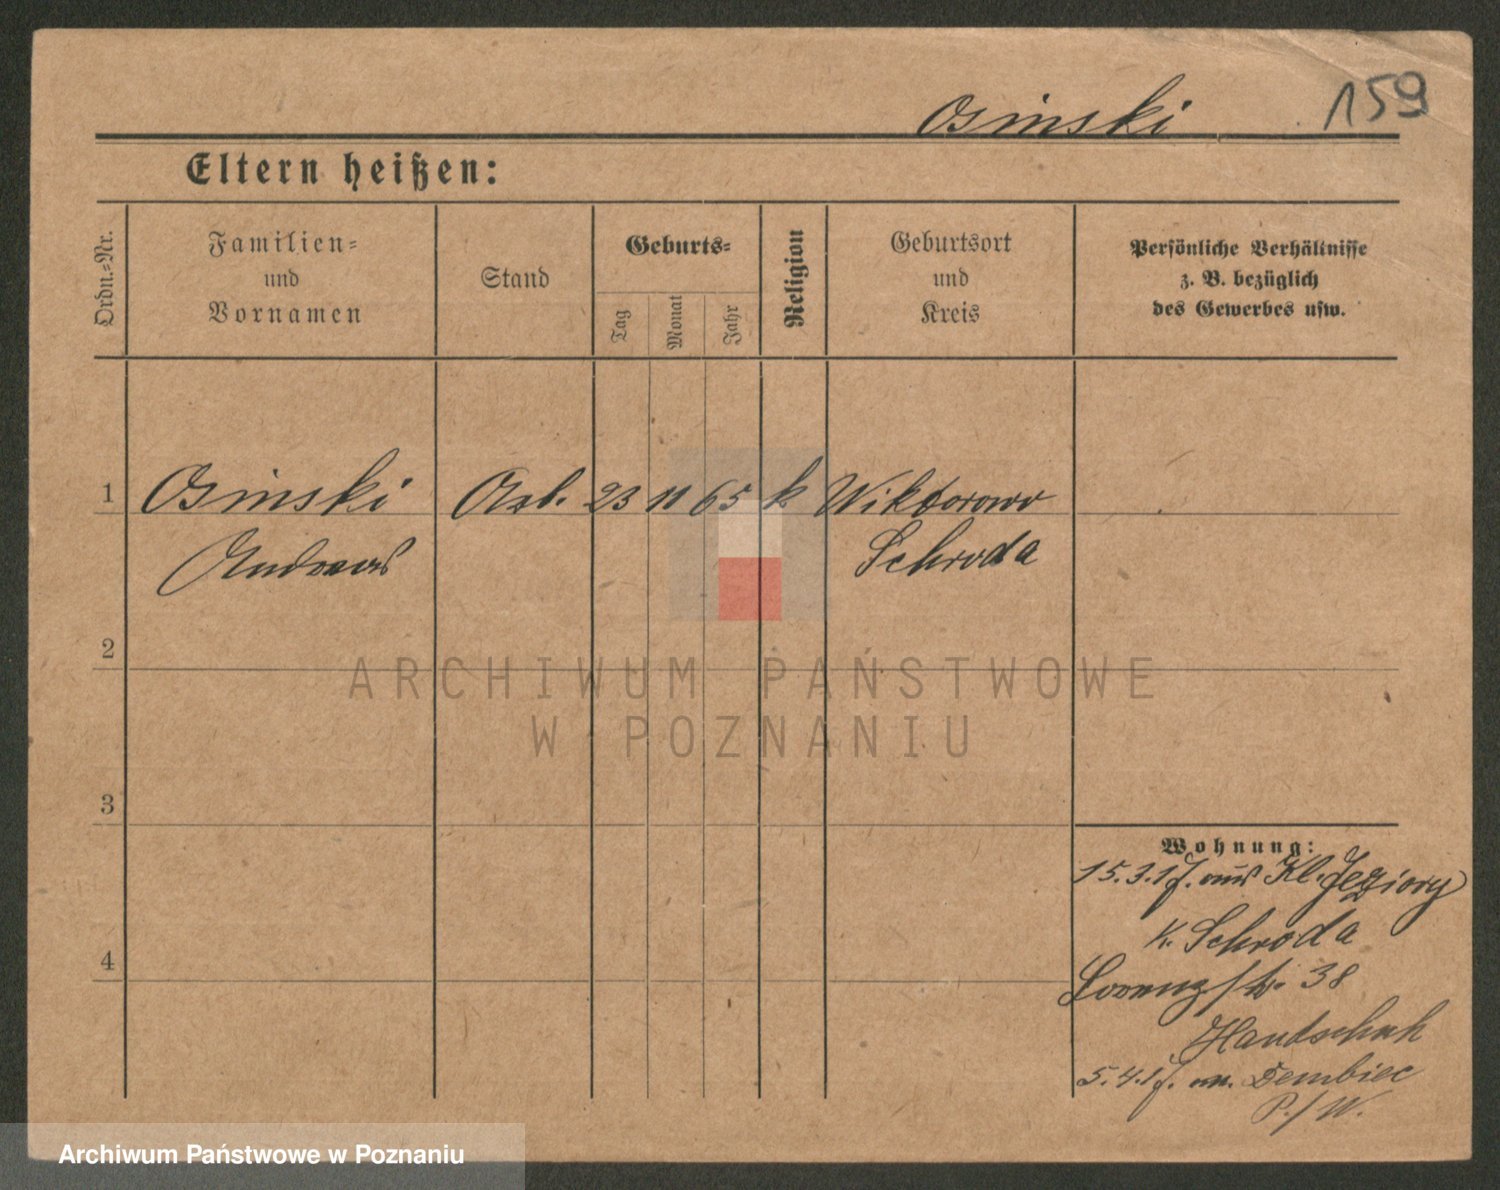 Osinski
159
Eltern heißen:
Ordn.=Nr.
Familien=
und
Vornamen
Stand
Geburts=
Tag
Monat
Jahr
Religion
Geburtsort
und
Kreis
Persönliche Verhältnisse
z. B. bezüglich
des Gewerbes usw.
1 Osinski Arb. 23 11 65 k Wiktorowo
Andreas Schroda
2
3
4
Wohnung:
15.3.17. aus Kl. Jeziory
K. Schroda
Lorenzstr. 38
Handschuh
5.4.17. n. Dembiec
P./W.
ARCHIWUM PAŃSTWOWE
W POZNANIU
Archiwum Państwowe w Poznaniu